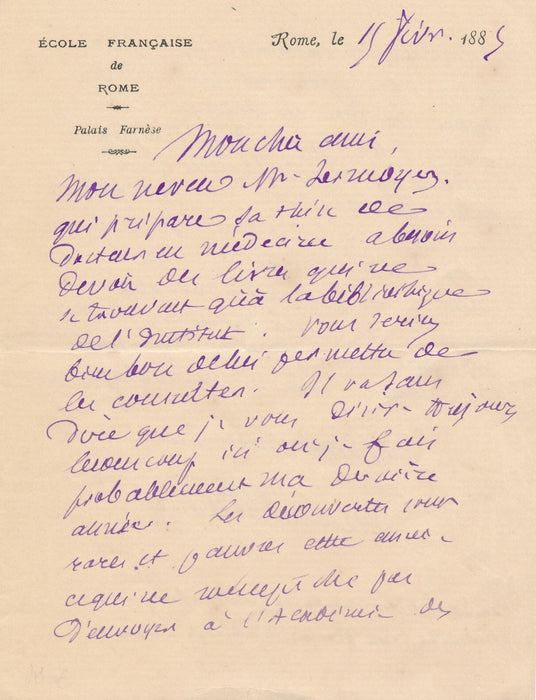 ÉCOLE FRANÇAISE
de
ROME
Palais Farnèse
Rome, le 15 févr. 1885
Mon cher ami,
Mon neveu Mr Lermoyez
qui prépare sa thèse de
Docteur en médecine a besoin
de voir des livres qui ne
se trouvent qu'à la bibliothèque
de l'Institut. Vous seriez
bien bon de lui permettre de
les consulter. Il va sans
dire que je vous désire toujours
beaucoup ici où je fais
probablement ma dernière
année. Les découvertes sont
rares et pauvres cette année
ce qui ne m'empêche pas
d'envoyer à l'Académie des